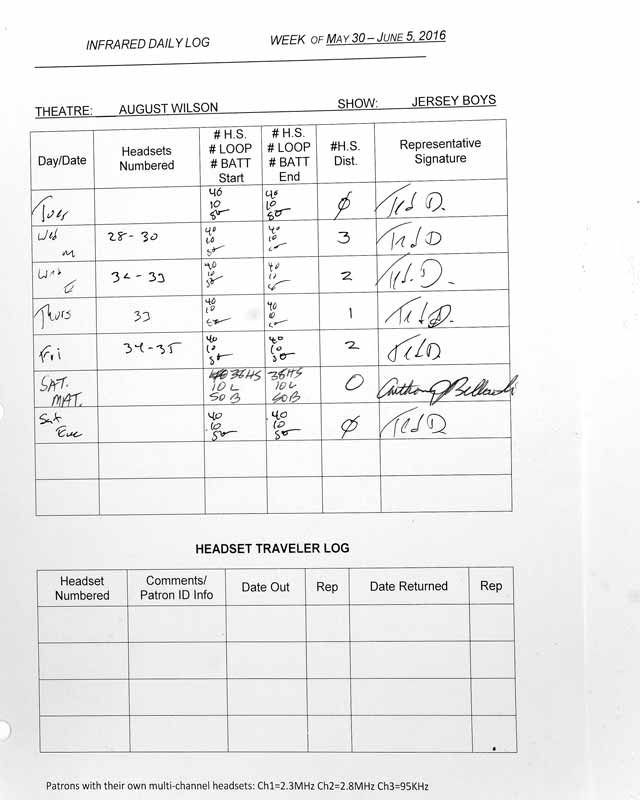 INFRARED DAILY LOG WEEK OF MAY 30 – JUNE 5, 2016
THEATRE: AUGUST WILSON SHOW: JERSEY BOYS
Day/Date Headsets Numbered # H.S. # LOOP # BATT Start # H.S. # LOOP # BATT End #H.S. Dist. Representative Signature
Tues 40 10 50 40 10 50 Ø Ted D.
Wed M 28-30 40 10 50 40 10 3 Ted D
Wed E 40 10 50 40 2 Ted. D.
Thurs 33 40 10 40 1 Ted D.
Fri 34-35 40 10 50 40 10 50 2 Ted D
SAT. MAT. 36 HS 10 L 50 B 38 HS 10 L 50 B 0 Anthony J
Sat Eve 40 10 50 40 10 50 Ø Ted D
HEADSET TRAVELER LOG
Headset Numbered Comments/ Patron ID Info Date Out Rep Date Returned Rep
Patrons with their own multi-channel headsets: Ch1=2.3MHz Ch2=2.8MHz Ch3=95KHz